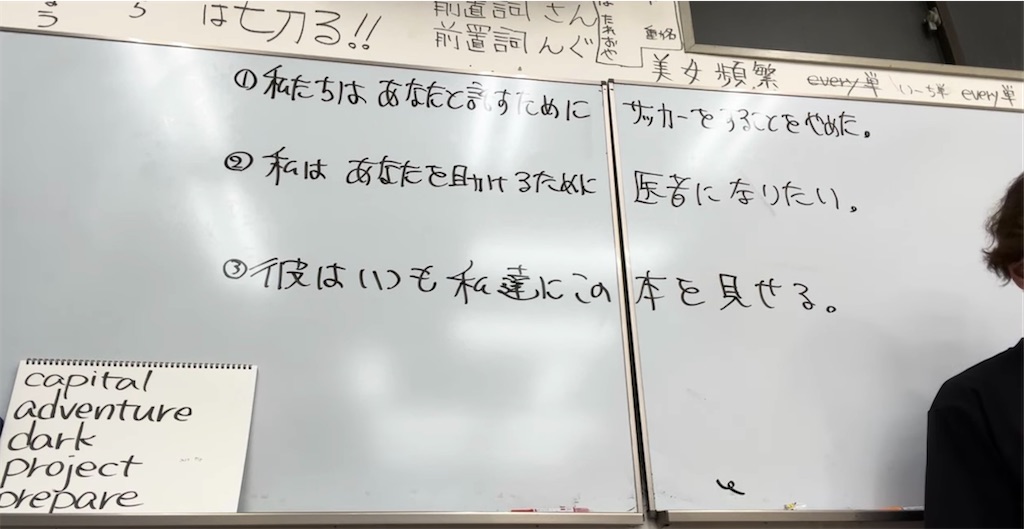 は七刀る!!
前直詞さん
前置詞んぐ
動名
美女頻繁 every単 いーち単 every単
①私たちはあなたと話すために サッカーをすることをやめた。
②私はあなたを助けるために 医者になりたい。
③彼はいつも私達にこの本を見せる。
capital
adventure
dark
project
prepare